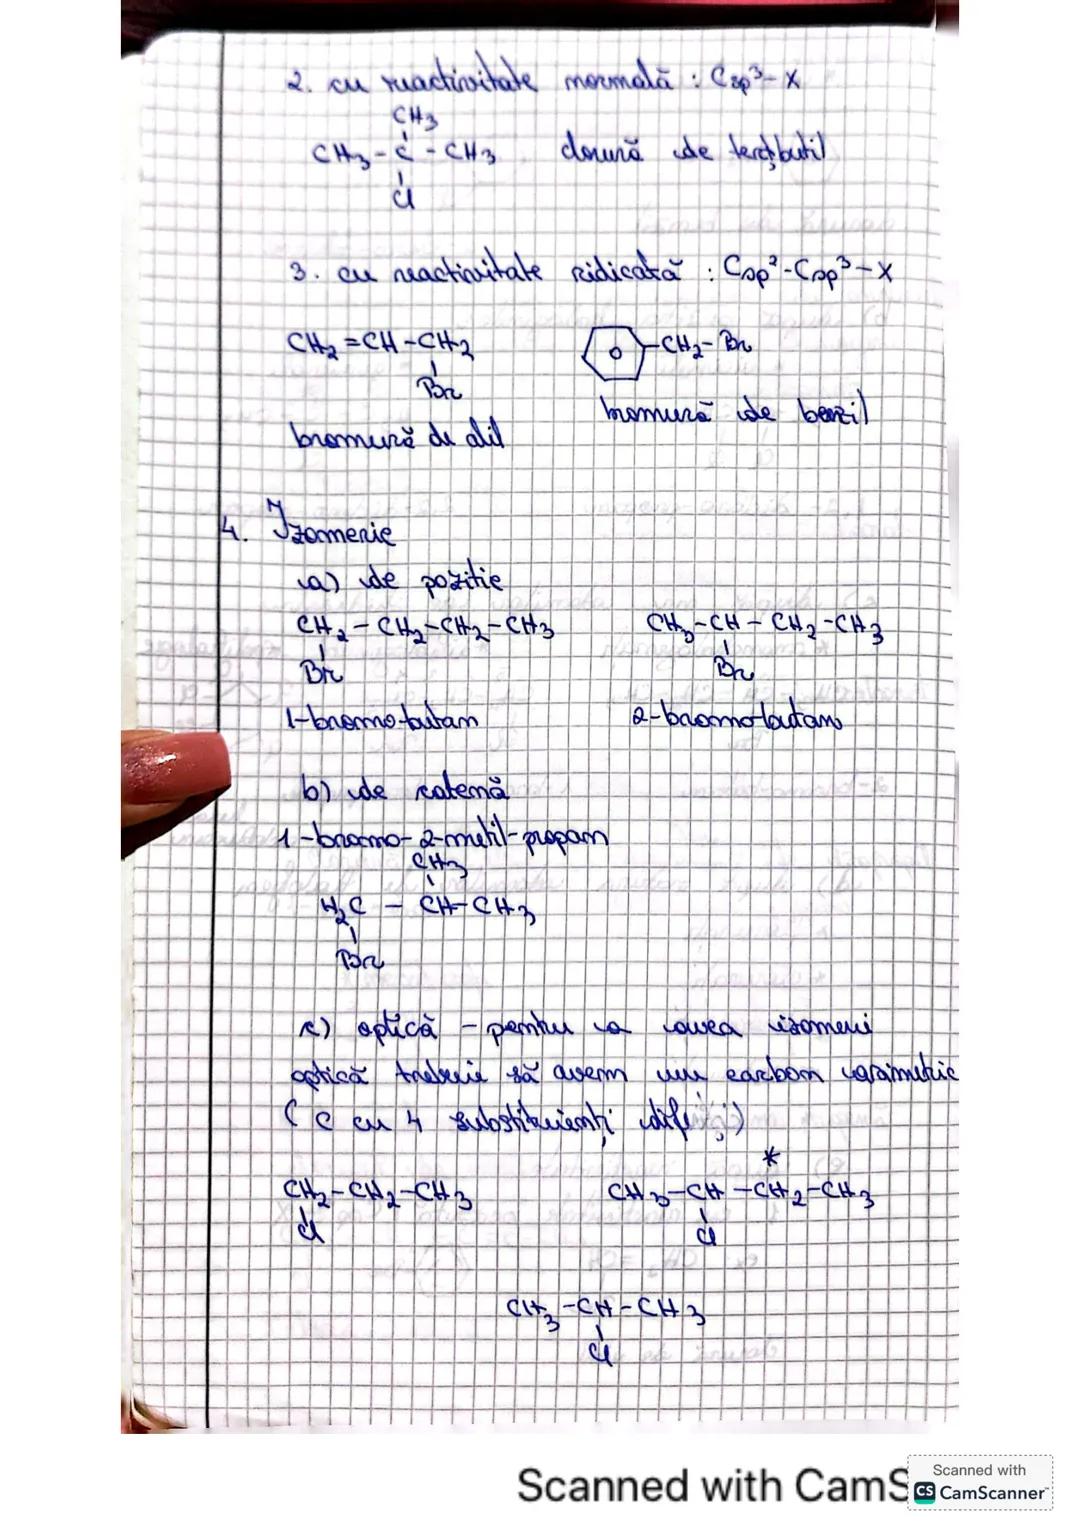 2. cu reactivitate normală : Csp³- X
CH₃
CH₃ - C - CH₃ clorură de terțbutil
Cl
3. cu reactivitate ridicată : Csp²-Csp³-X
CH₂ = CH - CH₂ -CH₂- Br
Br
bromură de benzil
bromură de alil
4. Izomerie
a) de poziție
CH₂ - CH₂-CH₂-CH₃ CH₃-CH - CH₂-CH₃
Br Br
1-bromo-butan 2-bromobutan
b) de catenă
1-bromo-2-metil-propan
CH₃
H₂C - CH-CH₃
Br
c) optică - pentru a avea izomeri
optică trebuie să avem un carbon asimetric
( C cu 4 substituienți diferiți)
*
CH₂-CH₂-CH₃ CH₃-CH-CH₂-CH₃
Cl Cl
CH₃-CH-CH₃
Cl
Scanned with CamS
Scanned with
CS CamScanner